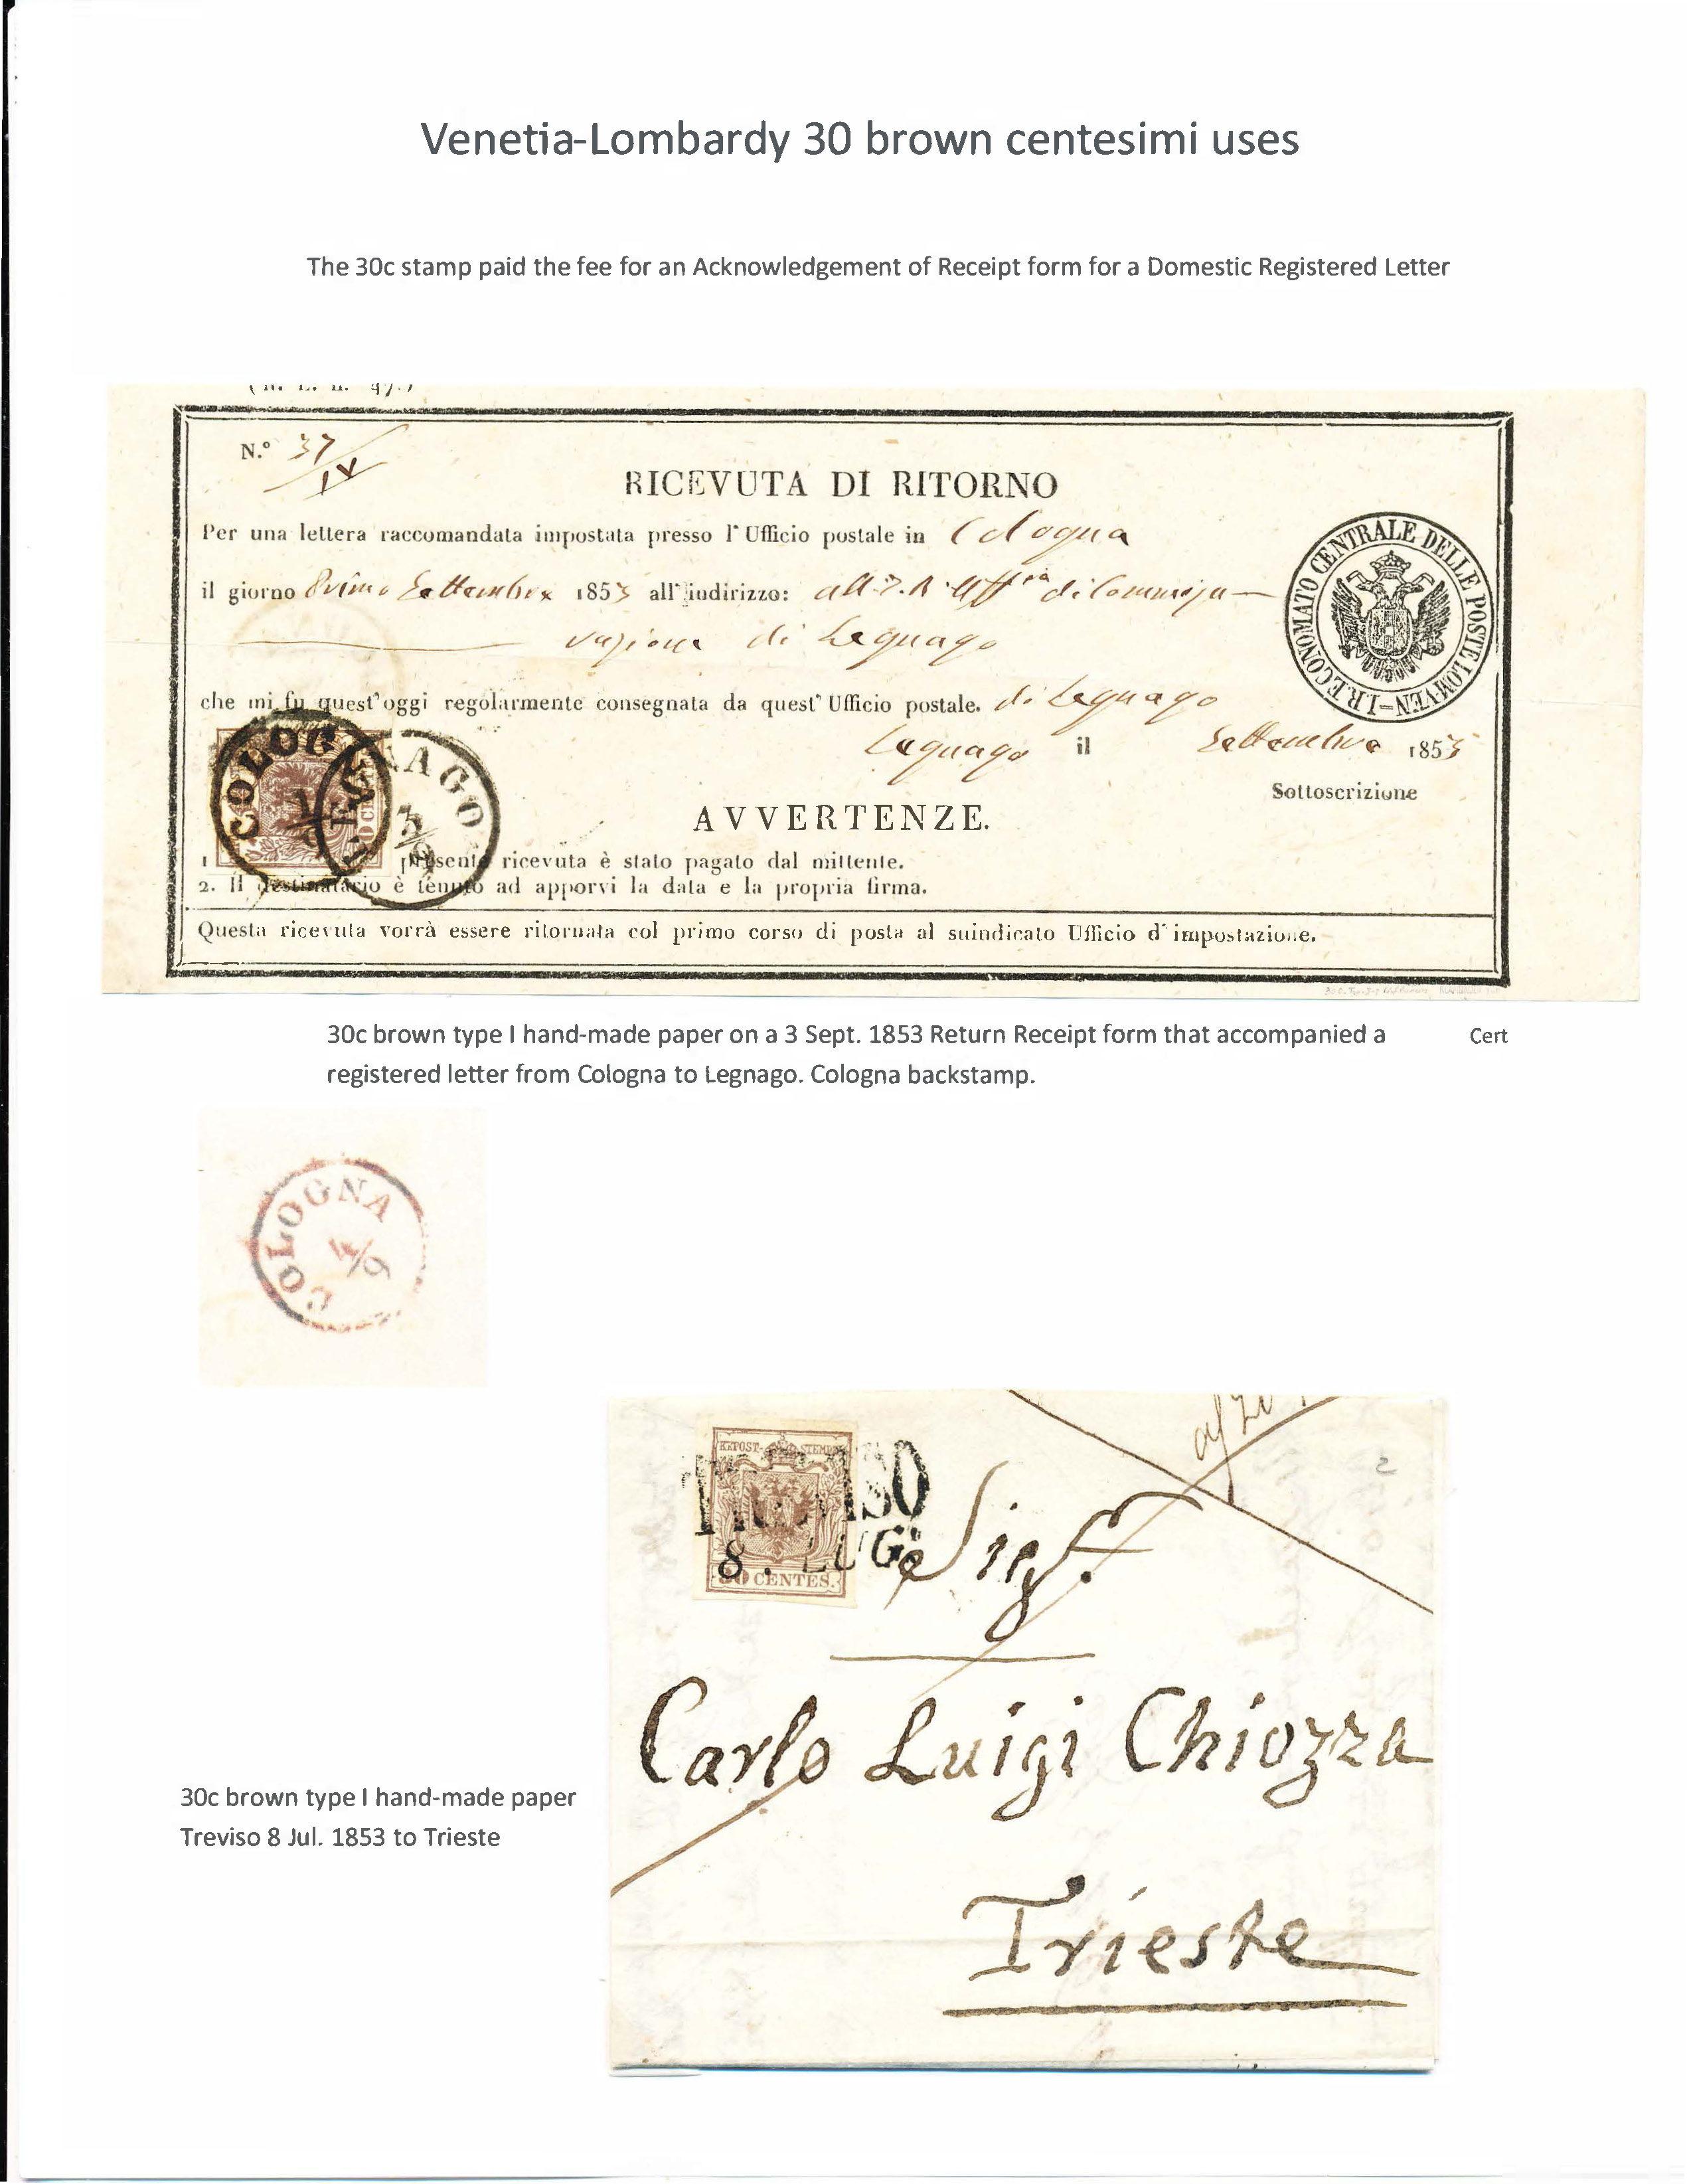 Venetia-Lombardy 30 brown centesimi uses
The 30c stamp paid the fee for an Acknowledgement of Receipt form for a Domestic Registered Letter
N.° 37/IV
RICEVUTA DI RITORNO
Per una lettera raccomandata impostata presso l' Ufficio postale in Cologna
il giorno Primo Settembre 1853 all' indirizzo: all' I. R. Uff di Commisu
razione di Legnago
I. R. ECONOMATO CENTRALE DELLE POSTE LOM-VEN
che mi fu quest' oggi regolarmente consegnata da quest' Ufficio postale. di Legnago
Legnago il Settembre 1853
Sottoscrizione
COLOGNA
1/9
LEGNAGO
3/9
AVVERTENZE.
1 presente ricevuta è stato pagato dal mittente.
2. Il destinatario è tenuto ad apporvi la data e la propria firma.
Questa ricevuta vorrà essere ritornata col primo corso di posta al suindicato Ufficio d' impostazione.
30c brown type I hand-made paper on a 3 Sept. 1853 Return Receipt form that accompanied a Cert
registered letter from Cologna to Legnago. Cologna backstamp.
COLOGNA
4/9
KKPOST-STEMPEL
TREVISO
8. LUG.
30 CENTES.
2
Sigr.
Carlo Luigi Chiozza
Trieste
30c brown type I hand-made paper
Treviso 8 Jul. 1853 to Trieste